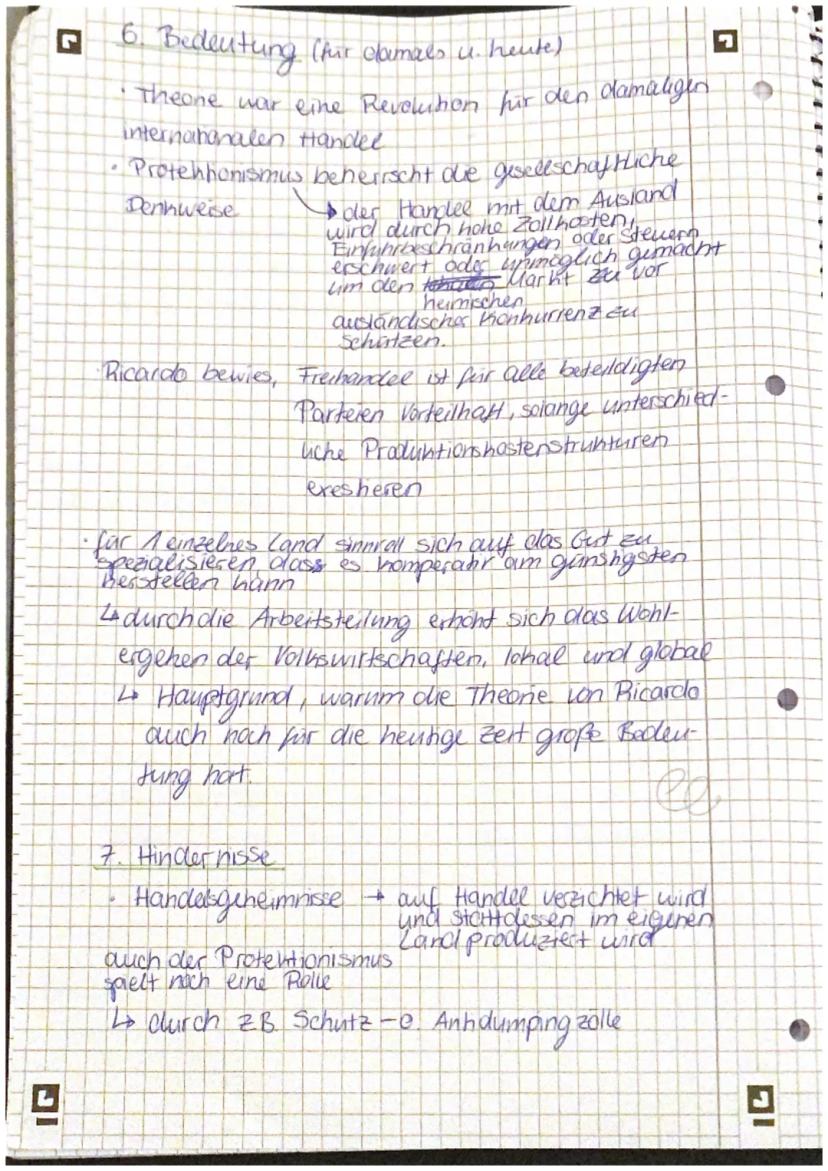 6. Bedeutung (für damals u. heute)
· Theorie war eine Revolution für den damaligen
internationalen Handel
· Protektionismus beherrscht die gesellschaftliche
Denkweise
→ der Handel mit dem Ausland
wird durch hohe Zollkosten,
Einfuhrbeschränkungen oder Steuern
erschwert oder unmöglich gemacht
um den Markt zu vor
heimischen
ausländischer Konkurrenz zu
schützen.
Ricardo bewies, Freihandel ist für alle beteildigten
Parteien Vorteilhaft, solange unterschied-
liche Produktionskostenstrukturen
exestieren
· für 1 einzelnes Land sinnvoll sich auf das Gut zu
spezialisieren, dass es komperativ am günstigsten
herstellen kann
↳ durch die Arbeitsteilung erhöht sich das Wohl-
ergehen der Volkswirtschaften, lokal und global
↳ Hauptgrund, warum die Theorie von Ricardo
auch noch für die heutige Zeit große Bedeu-
tung hat.
7. Hindernisse
· Handelsgeheimnisse → auf Handel verzichtet wird
und stattdessen im eigenen
Land produziert wird
auch der Protektionismus
spielt noch eine Rolle
↳ durch zB. Schutz- o. Antidumpingzölle